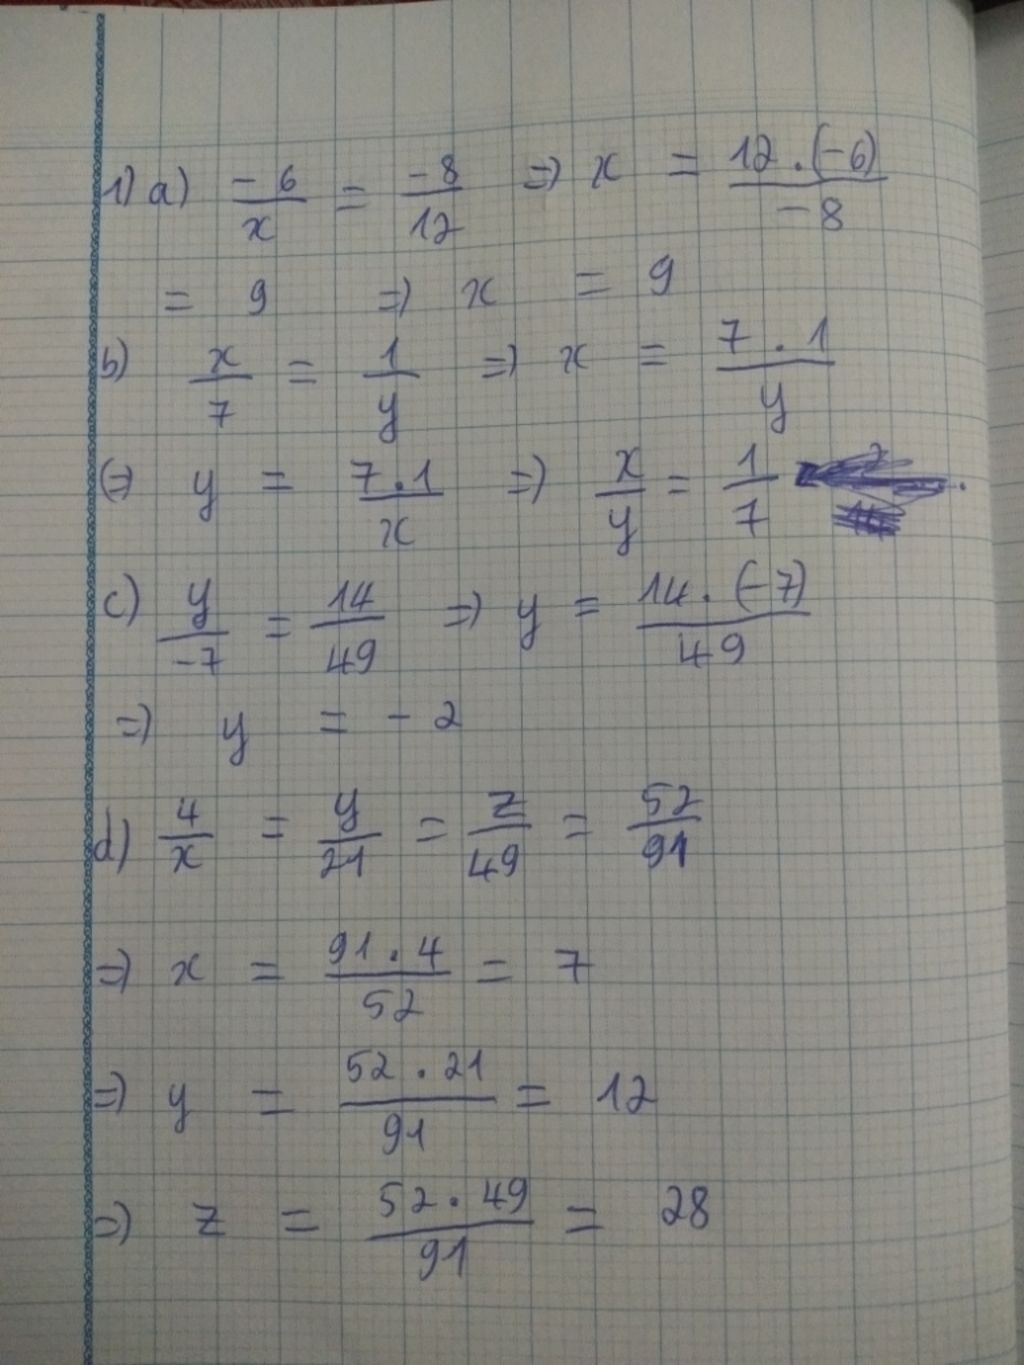 1) a) -6/x = -8/12 => x = 12.(-6)/-8
= 9 => x = 9
b) x/7 = 1/y => x = 7.1/y
(=> y = 7.1/x => x/y = 1/7
c) y/-7 = 14/49 => y = 14.(-7)/49
=> y = -2
d) 4/x = y/21 = z/49 = 52/91
=> x = 91.4/52 = 7
=> y = 52.21/91 = 12
=> z = 52.49/91 = 28